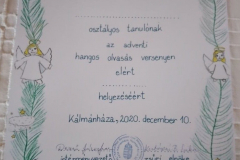 osztályos tanulónak
az adventi
hangos olvasás versenyen
elért
helyezéséért
Kálmánháza, 2020. december 10.